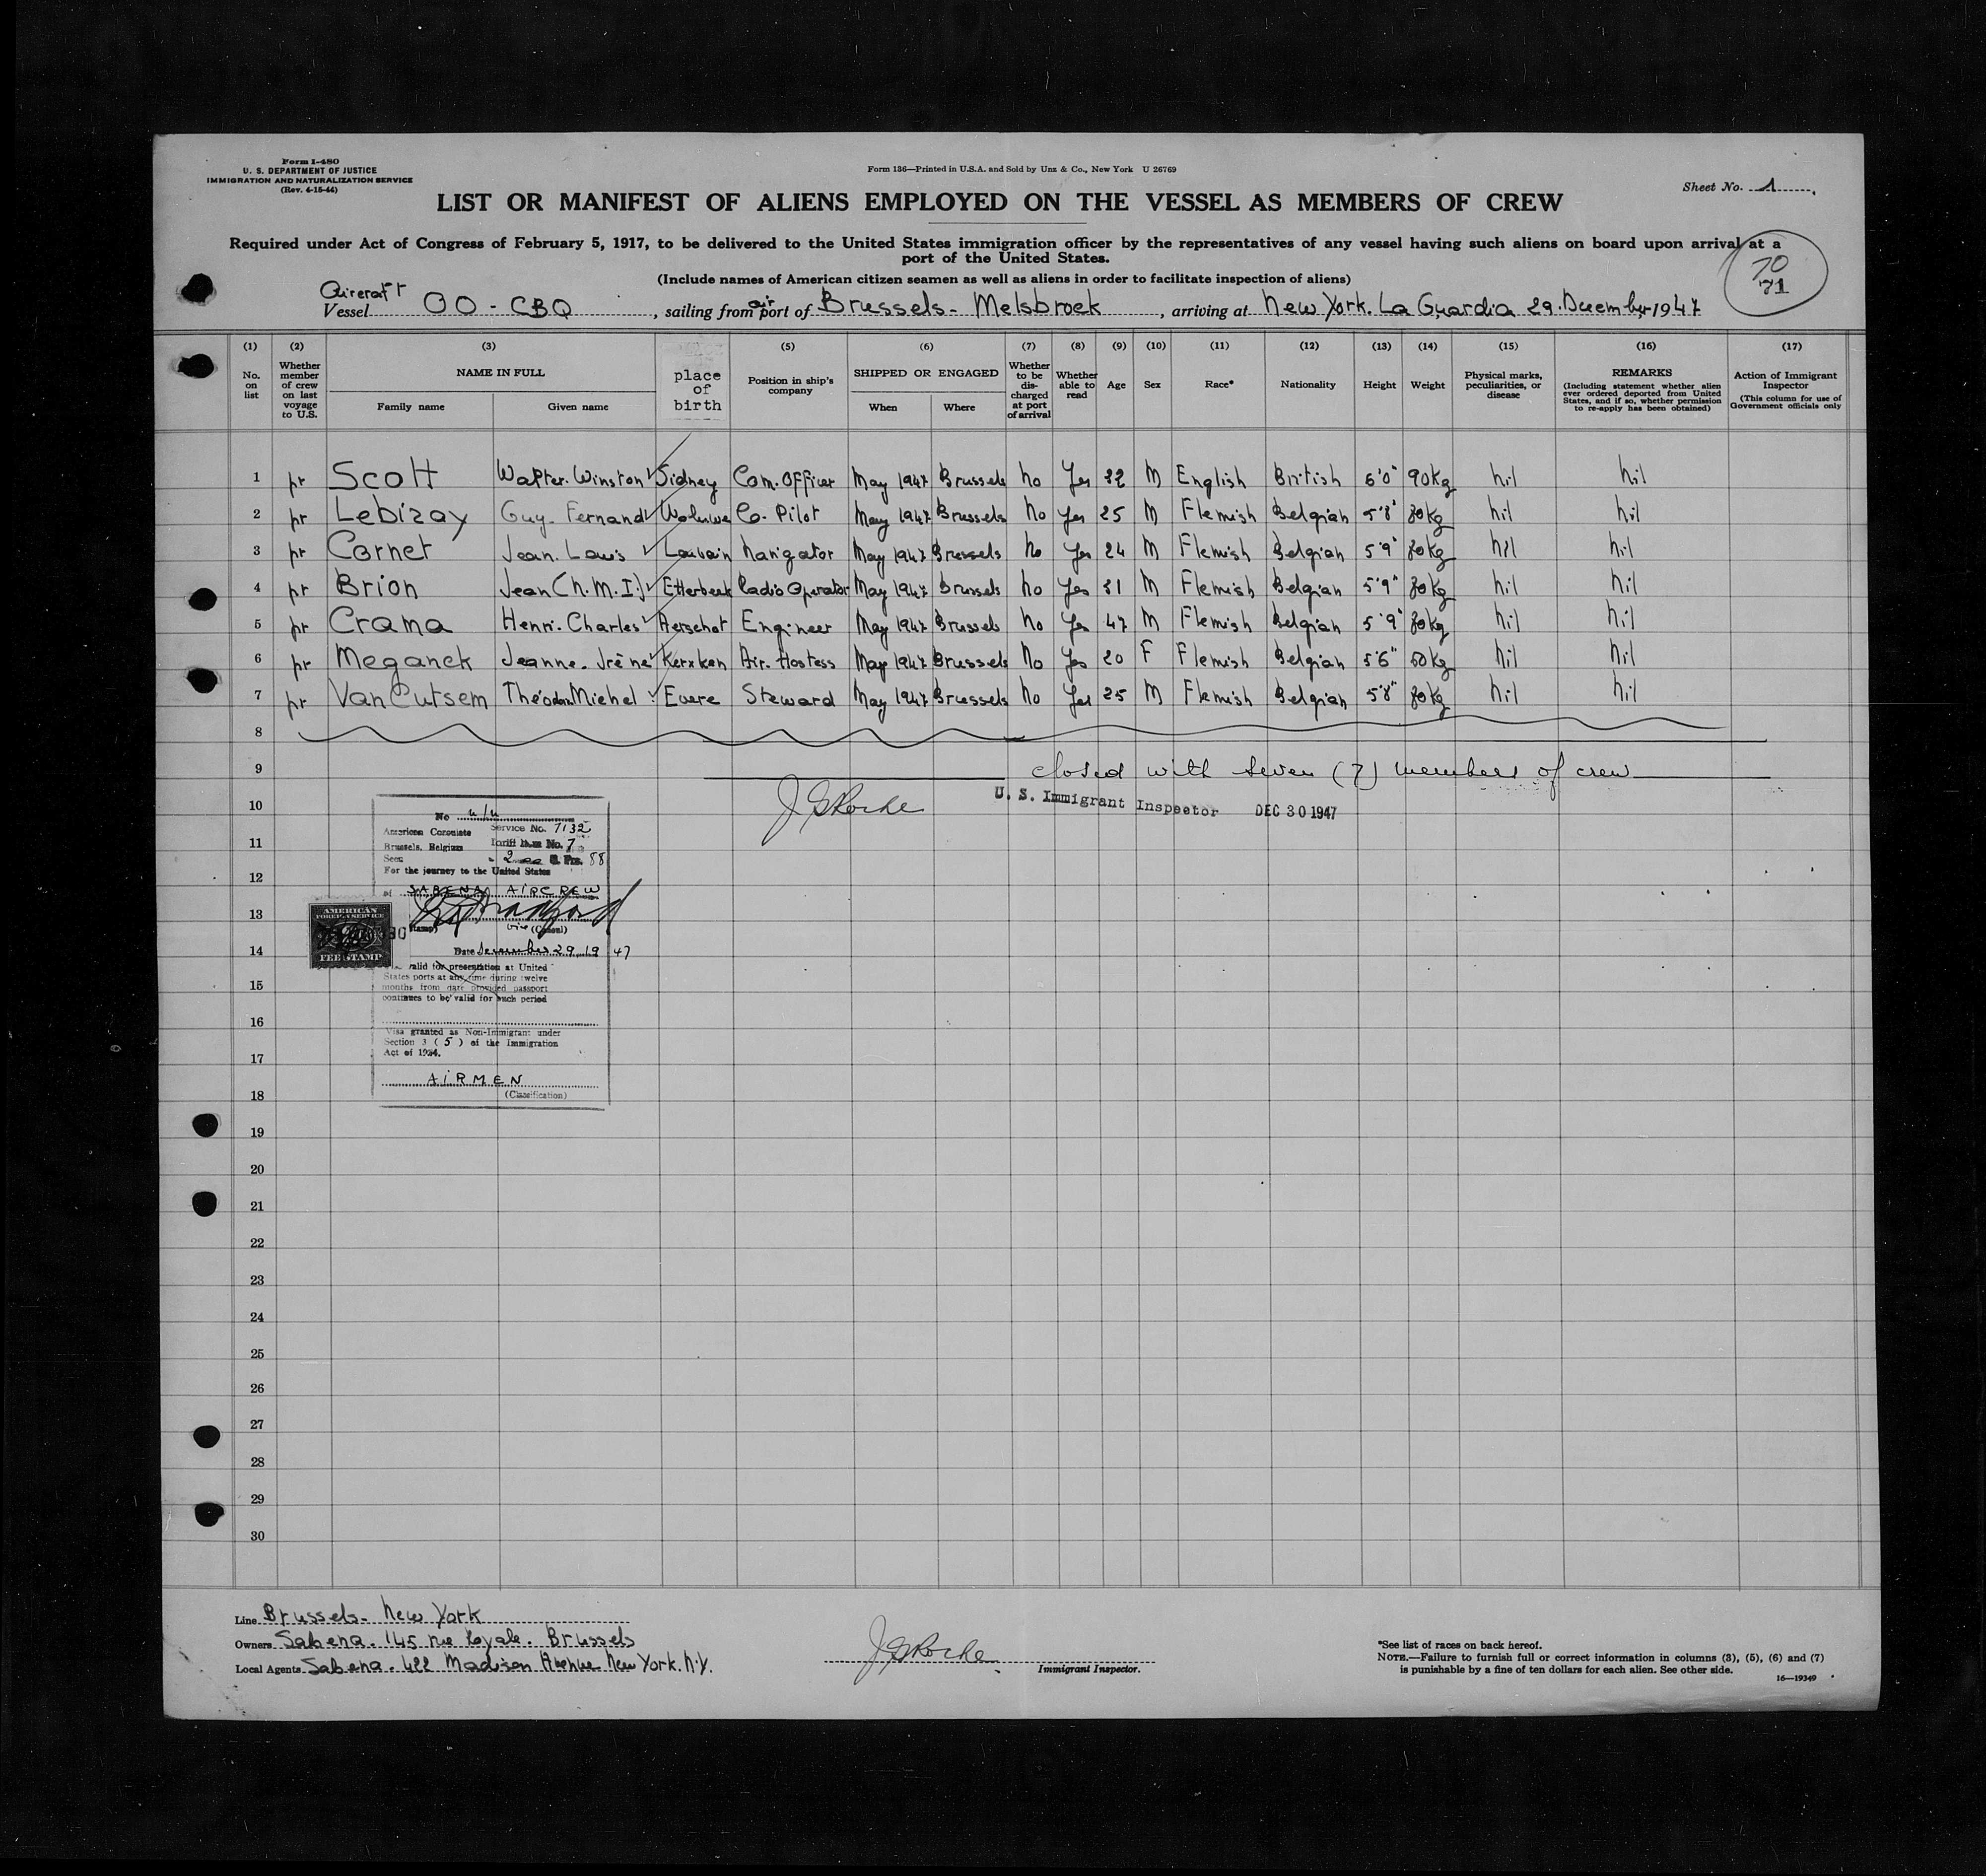 Form I-480
U. S. DEPARTMENT OF JUSTICE
IMMIGRATION AND NATURALIZATION SERVICE
(Rev. 4-15-44)
Form 136—Printed in U.S.A. and Sold by Unz & Co., New York U 26769
Sheet No. 1
LIST OR MANIFEST OF ALIENS EMPLOYED ON THE VESSEL AS MEMBERS OF CREW
Required under Act of Congress of February 5, 1917, to be delivered to the United States immigration officer by the representatives of any vessel having such aliens on board upon arrival at a
port of the United States.
(Include names of American citizen seamen as well as aliens in order to facilitate inspection of aliens)
70
71
Aircraft
Vessel OO - CBQ, sailing from air port of Brussels - Melsbroek, arriving at New York. La Guardia 29. December 1947
(1) (2) (3) (5) (6) (7) (8) (9) (10) (11) (12) (13) (14) (15) (16) (17)
No. on list
Whether member of crew on last voyage to U.S.
NAME IN FULL
Family name
Given name
place of birth
Position in ship's company
SHIPPED OR ENGAGED
When
Where
Whether to be discharged at port of arrival
Whether able to read
Age
Sex
Race*
Nationality
Height
Weight
Physical marks, peculiarities, or disease
REMARKS
(Including statement whether alien ever ordered deported from United States, and if so, whether permission to re-apply has been obtained)
Action of Immigrant Inspector
(This column for use of Government officials only
1 pr Scott Walter. Winston Sidney Com. Officer May 1947 Brussels no Yes 32 M English British 6'0" 90Kg nil nil
2 pr Lebizay Guy. Fernand Woluwe Co. Pilot May 1947 Brussels no Yes 25 M Flemish Belgian 5'8" 80Kg nil nil
3 pr Cornet Jean. Louis Louvain navigator May 1947 Brussels no Yes 24 M Flemish Belgian 5'9" 80Kg nil nil
4 pr Brion Jean (N.M.I.) Etterbeek Radio Operator May 1947 Brussels no Yes 31 M Flemish Belgian 5'9" 80Kg nil nil
5 pr Crama Henri. Charles Aerschot Engineer May 1947 Brussels no Yes 47 M Flemish Belgian 5'9" 80Kg nil nil
6 pr Meganck Jeanne. Irène Kerxken Air. Hostess May 1947 Brussels no Yes 20 F Flemish Belgian 5'6" 50Kg nil nil
7 pr Van Cutsem Michel Evere Steward May 1947 Brussels no Yes 25 M Flemish Belgian 5'8" 80Kg nil nil
8
9 closed with seven (7) members of crew
10 J G Roche U. S. Immigrant Inspector DEC 30 1947
11
12
13
14
15
16
17
18
19
20
21
22
23
24
25
26
27
28
29
30
No
American Consulate Service No. 7132
Brussels, Belgium Tariff Item No. 7
Seen
For the journey to the United States
of SABENA AIRCREW
AMERICAN
FOREIGN SERVICE
FEE STAMP
Stamp) vice (Consul)
Date December 29 1947
valid for presentation at United
States ports at any time during twelve
months from date provided passport
continues to be valid for such period
Visa granted as Non-Immigrant under
Section 3 (5) of the Immigration
Act of 1924.
AIRMEN
(Classification)
Line Brussels - New York
Owners Sabena. 145 rue Royale. Brussels
Local Agents Sabena. 422 Madison Avenue New York. N.Y.
J G Roche
Immigrant Inspector.
*See list of races on back hereof.
NOTE.—Failure to furnish full or correct information in columns (3), (5), (6) and (7)
is punishable by a fine of ten dollars for each alien. See other side.
16—19349